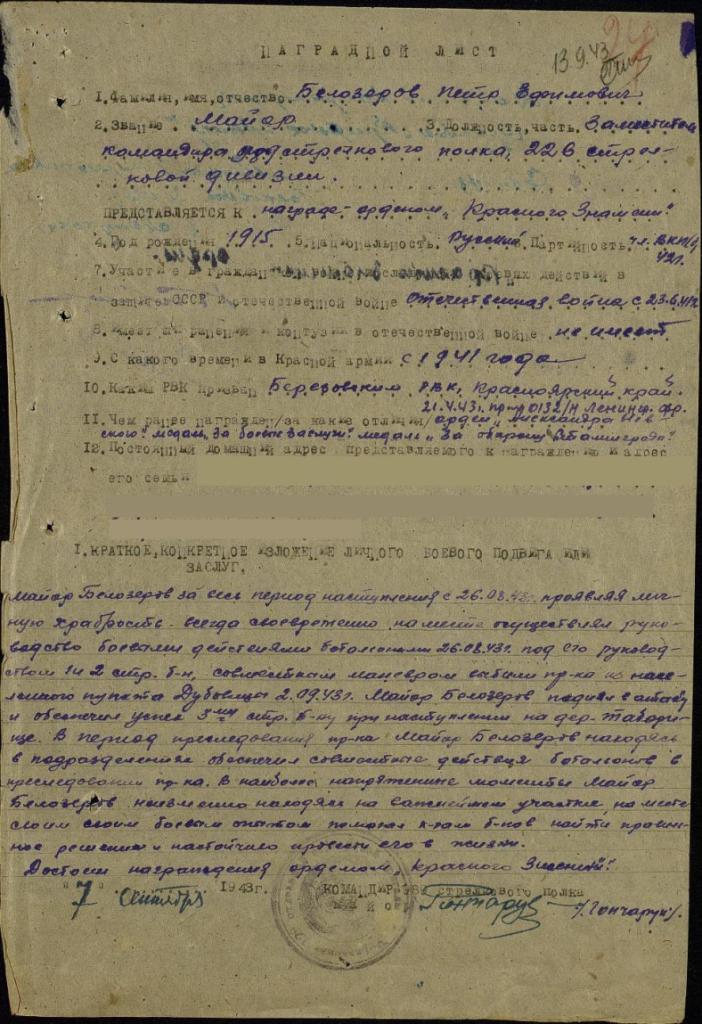 13.9.43
НАГРАДНОЙ ЛИСТ
1. Фамилия, имя, отчество. Белозеров Петр Ефимович
2. Звание Майор 3. Должность, часть. Заместитель
командира стрелкового полка, 226 стрел-
ковой дивизии.
ПРЕДСТАВЛЯЕТСЯ К награде-орденом „Красного Знамени"
4. Год рождения 1915. 5. Национальность. Русский 6. Партийность чл. ВКП/б
42г.
7. Участие в гражданской боевых действий в
защите СССР и отечественной войне Отечественная война с 23.6.41г.
8. Имеет ли ранения и контузии в отечественной войне не имеет
9. С какого времени в Красной армии с 1941 года
10. Каким РВК призван Березовским РВК, Красноярский край.
21.4.43г. пр-р 0132/н Ленингр. фр.
11. Чем ранее награжден /за какие отличия/ орден „Александра Нев
ского" медаль „За боевые заслуги" медаль „За оборону Сталинграда"
12. Постоянный домашний адрес представляемого к награждению и адрес
его семьи
I. КРАТКОЕ, КОНКРЕТНОЕ ИЗЛОЖЕНИЕ ЛИЧНОГО БОЕВОГО ПОДВИГА ИЛИ
ЗАСЛУГ.
Майор Белозеров за весь период наступления с 26.08.43г. проявляя лич-
ную храбрость всегда своевременно на месте осуществлял руко-
водство боевыми действиями батальонами 26.08.43г. под его руковод-
ством 1 и 2 стр. б-н, совместным маневром выбили пр-ка из насе-
ленного пункта Дубовицы 2.09.43г. Майор Белозеров поднял в атаку
и обеспечил успех 3-му стр. б-ну при наступлении на дер-
ще. В период преследования пр-ка Майор Белозеров находясь
в подразделениях обеспечил совместные действия батальонов в
преследовании пр-ка. В наиболее напряженные моменты Майор
Белозеров неизменно находясь на важнейшем участке, на месте
своим своим боевым опытом помогал к-рам б-нов найти правиль-
ное решение и настойчиво провести его в жизнь.
Достоин награждения орденом „Красного Знамени".
"7" Сентября 1943г. КОМАНДИР стрелкового полка
майор Гончарук /Гончарук/.